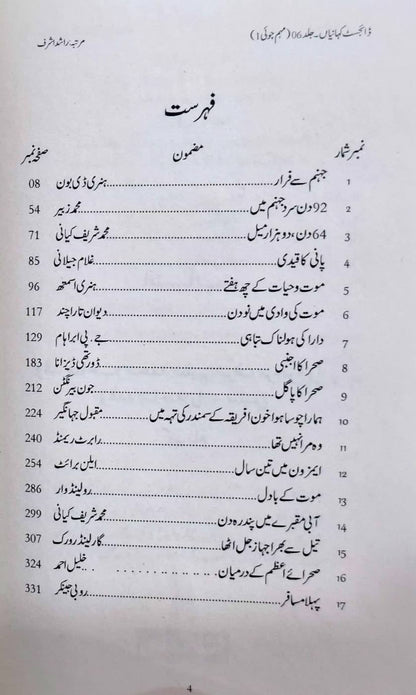 ڈائجسٹ کہانیاں۔جلد 06 (مہم جوئی 1) مرتبہ: راشد اشرف
فہرست
نمبر شمار مضمون صفحہ نمبر
1 جہنم سے فرار ہنری ڈی بون 08
2 92 دن سرد جہنم میں محمد زبیر 54
3 64 دن، دو ہزار میل محمد شریف کیانی 71
4 پانی کا قیدی غلام جیلانی 85
5 موت و حیات کے چھ ہفتے ہنری اسمتھ 96
6 موت کی وادی میں نو دن دیوان تارا چند 117
7 دارا کی ہولناک تباہی جے۔ پی ابراہام 129
8 صحرا کا اجنبی ڈورتھی ڈیزانا 183
9 صحرا کا پاگل جون بیرنگٹن 212
10 ہمارا چوسا ہوا خون افریقہ کے سمندر کی تہہ میں مقبول جہانگیر 224
11 وہ مرا نہیں تھا رابرٹ ریمنڈ 240
12 ایمزون میں تین سال ایلن برائٹ 254
13 موت کے بادل رولینڈ وار 286
14 آبی مقبرے میں پندرہ دن محمد شریف کیانی 299
15 تیل سے بھرا جہاز جل اٹھا گارلینڈ رورک 307
16 صحرائے اعظم کے درمیان خلیل احمد 324
17 پہلا مسافر روبی جینکر 331
4